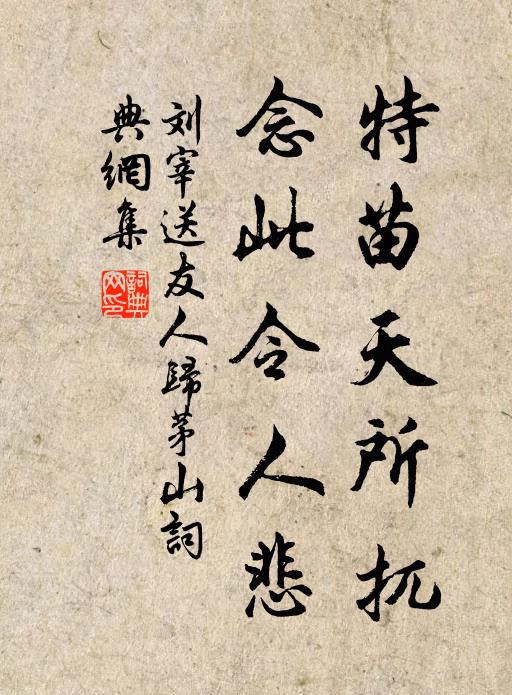 特苗天所扤
念此令人悲
刘宰送友人歸茅山詞
典網集
詞典網印